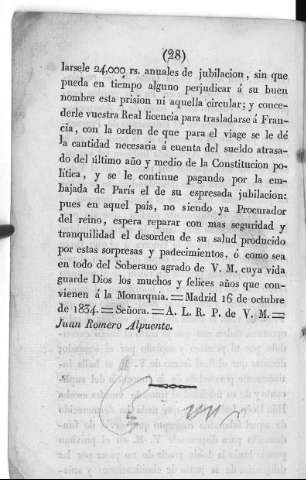 (28)
larsele 24,000 rs. anuales de jubilacion, sin que
pueda en tiempo alguno perjudicar á su buen
nombre esta prision ni aquella circular; y conce-
derle vuestra Real licencia para trasladarse á Fran-
cia, con la orden de que para el viage se le dé
la cantidad necesaria á cuenta del sueldo atrasa-
do del último año y medio de la Constitucion po-
lítica, y se le continue pagando por la em-
bajada de París el de su espresada jubilacion:
pues en aquel pais, no siendo ya Procurador
del reino, espera reparar con mas seguridad y
tranquilidad el desorden de su salud producido
por estas sorpresas y padecimientos, ó como sea
en todo del Soberano agrado de V. M. cuya vida
guarde Dios los muchos y felices años que con-
vienen á la Monarquía. = Madrid 16 de octubre
de 1834. = Señora. = A. L. R. P. de V. M. =
Juan Romero Alpuente.